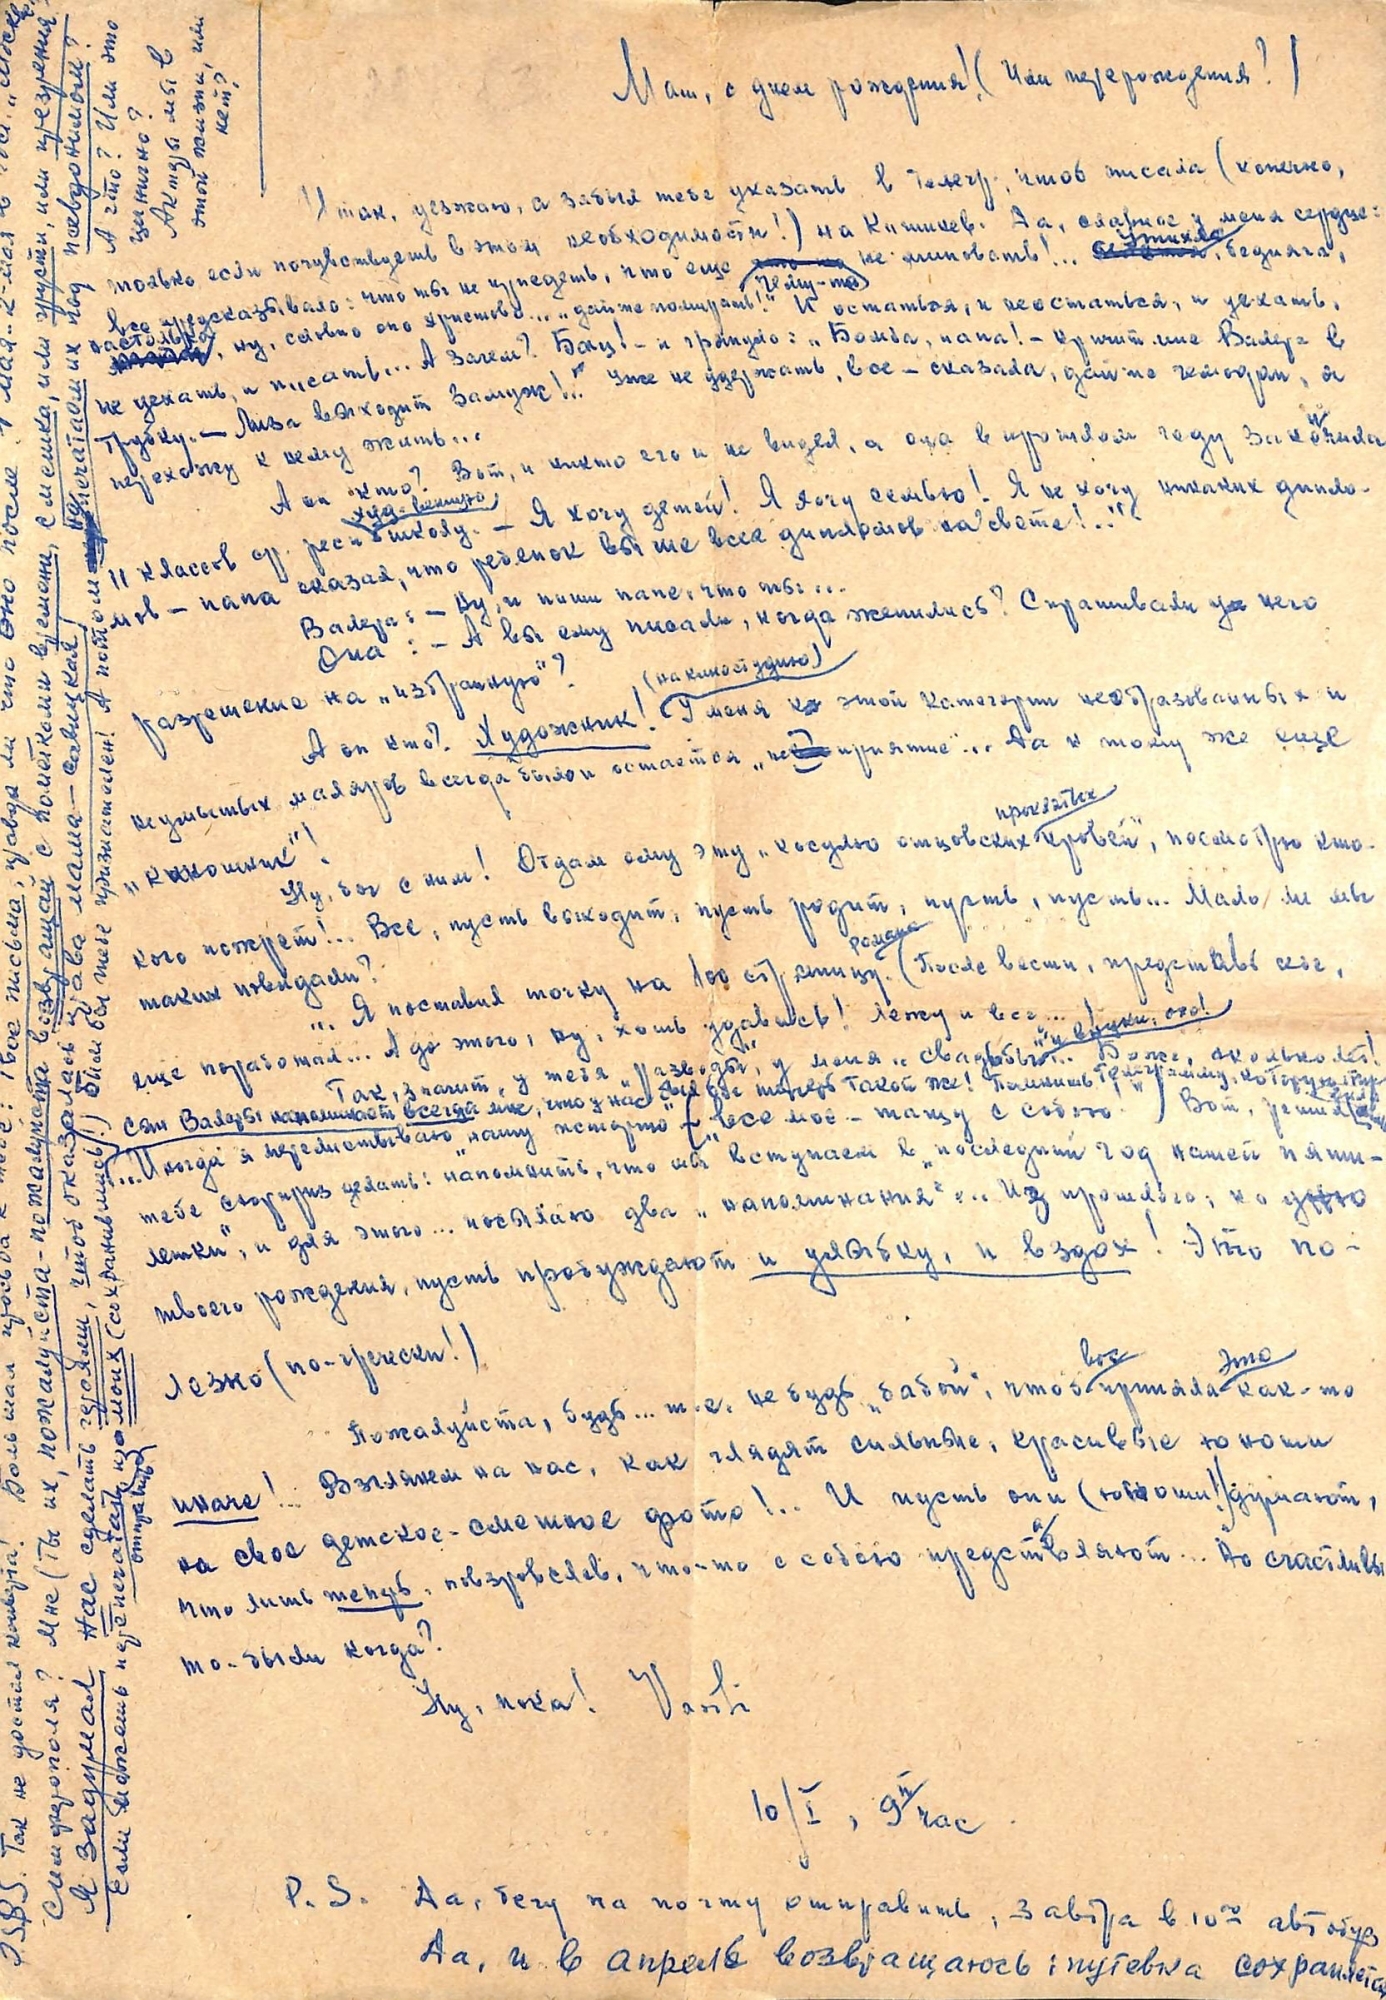 Маш, с днем рождения! (Или перерождения?)
Итак, уезжаю, а забыл тебе указать в телегр., чтоб писала (конечно,
только если почувствуешь в этом необходимости!) на Кишинев. Да, славное у меня сердце:
все предсказывало: что ты не приедешь, что еще чему-то не миновать!... утихло, бедняга,
настолько, ну, словно оно христово... "дайте помирать!" И остаться, и не остаться, и уехать,
не уехать, и писать... А зачем? Бац! – и грянуло: "Бомба, папа! – кричит мне Валера в
трубку. – Лиза выходит замуж!.." Уже не удержать, все – сказала, дай-те чемодан, я
перехожу к нему жить...
А он кто? Вот, и никто его и не видел, а она в прошлом году закончила
11 классов ср. респ. худ. школу. – Я хочу детей! Я хочу семью! Я не хочу никаких дипло-
мов – папа сказал, что ребенок выше всех дипломов на свете!.."
Валера: – Ну, и пиши папе, что ты...
Она: – А вы ему писали, когда женились? Спрашивали у него
разрешение на "избранную"?
А он кто? Художник! (на киностудию) У меня к этой категории необразованных и
неумытых маляров всегда было и остается "неприятие"... Да к тому же еще
"киношник"!
Ну, бог с ним! Отдам ему эту "косулю отцовских проклятых кровей", посмотрю кто-
кого пожрет!... Все, пусть выходит, пусть родит, пусть, пусть... Мало ли мы
таких повидали?
... Я поставил точку на 100 страницу романа. (После вести, представь себе,
еще поработал... А до этого, ну, хоть удавись! Лежу и все...
Так, значит, у тебя "разводы", у меня "свадьбы"... "и внуки, ого!" Боже, сколько лет!
сын Валеры напоминает всегда мне, что у нас был бы теперь такой же! Помнишь телеграмму, которую
... Иногда я перелистываю "нашу историю" – "все мое – тащу с собою") Вот, решил
тебе сюрприз сделать: напомнить, что мы вступаем в "последний год нашей пяти-
летки", и для этого... посылаю два "напоминания"... Из прошлого, ко дню
твоего рождения, пусть пробуждают и улыбку, и вздох! Это по-
лезно (по-гречески!)
Пожалуйста, будь... т.е. не будь "бабой", чтоб все приняла это как-то
иначе!... Взглянем на нас, как глядят сильные, красивые юноши
на свое детское-смешное фото!.. И пусть они (юноши!) думают,
что лишь теперь, повзрослев, что-то с собою представляют... А счастливы
то-были когда?
Ну, пока! Vasili
10/I, 9 час.
P.S. Да, бегу на почту отправить, завтра в 10 автобус
Да, и в апреле возвращаюсь: путевка сохраняется
Так не достал конверта! Большая просьба к тебе: твое письма, правда ли что оно после
Симферополя? Мне (ты их, пожалуйста-пожалуйста возвращай с пометками времени, смешка, или грусти, или презрения
Я задумал нас сделать героями, чтоб оказалась права мама – Савицкая)
Если можешь перепечатать из моих (сохранившись!) Был бы тебе признателен! А потом напечатаем их под псевдонимом?
отправить
А что? Или это
цинично?
Актеры мы в
этой жизни, или
нет?